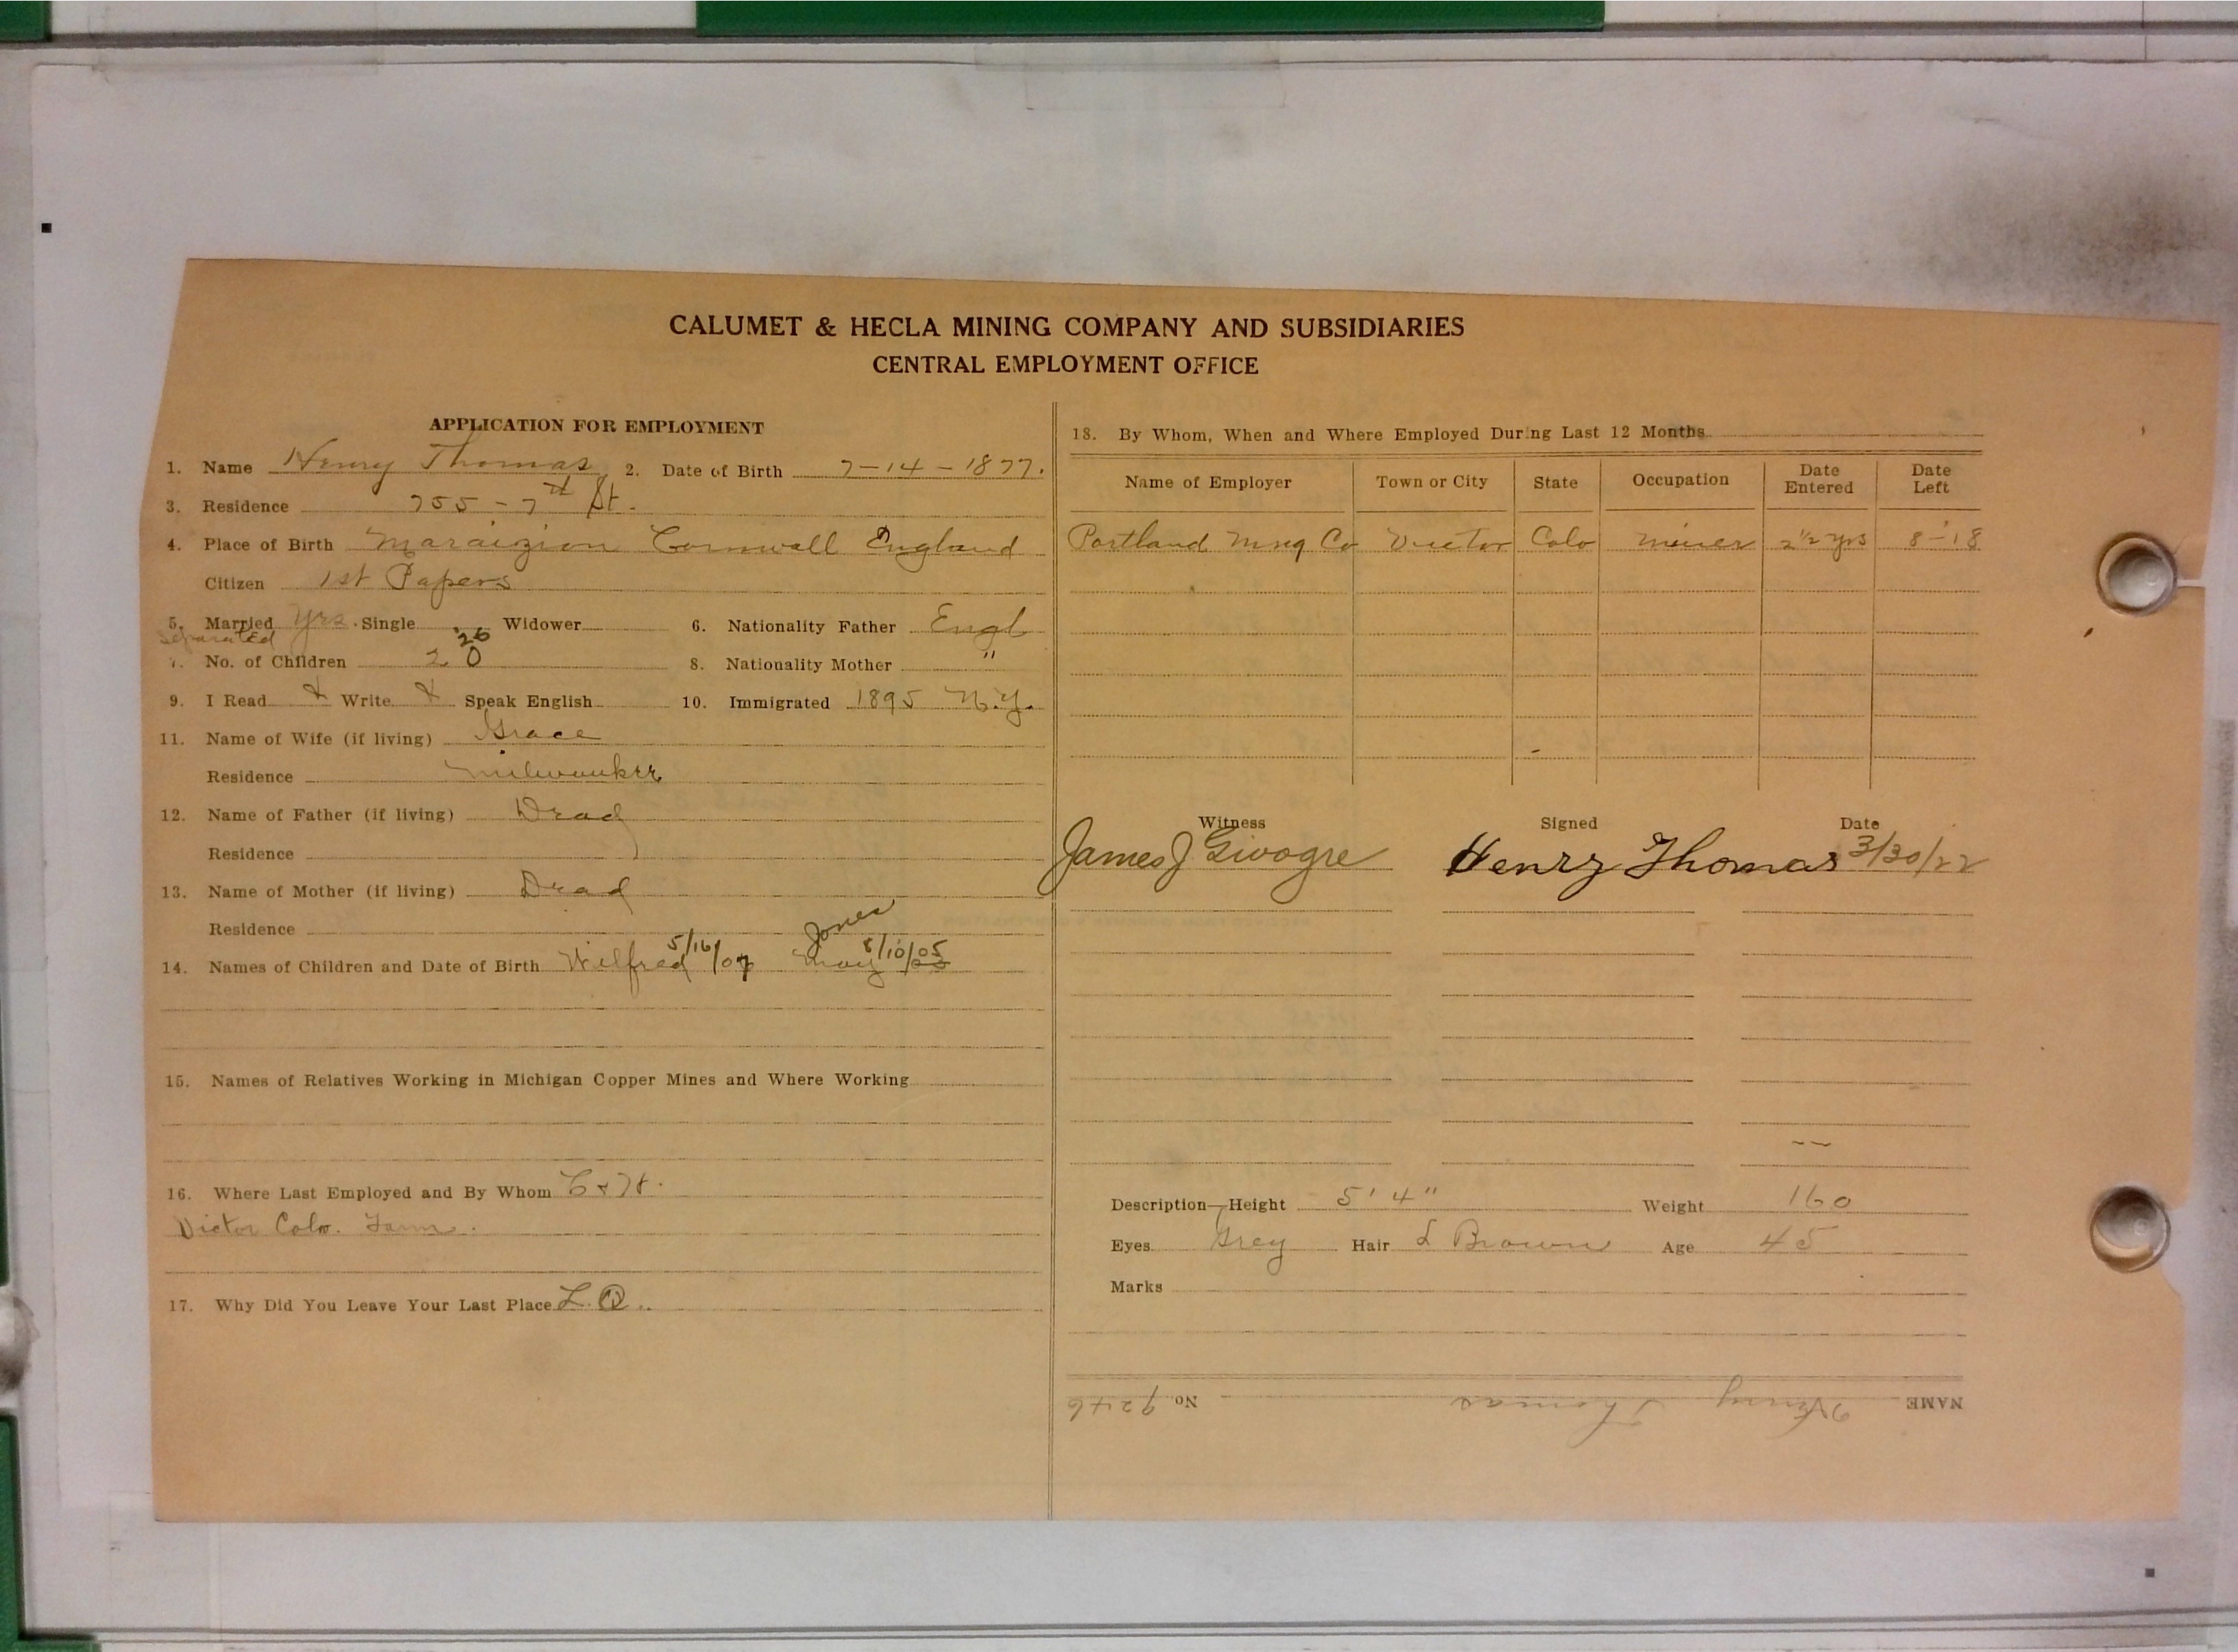 CALUMET & HECLA MINING COMPANY AND SUBSIDIARIES
CENTRAL EMPLOYMENT OFFICE
APPLICATION FOR EMPLOYMENT
1. Name Henry Thomas 2. Date of Birth 7-14-1877.
3. Residence 755-7th St.
4. Place of Birth Maraizion Cornwall England
Citizen 1st Papers
5. Married Yes. Single Widower 6. Nationality Father Engl
Separated
7. No. of Children 2 0 '26 8. Nationality Mother "
9. I Read & Write & Speak English 10. Immigrated 1895 N.Y.
11. Name of Wife (if living) Grace
Residence Milwaukee
12. Name of Father (if living) Dead
Residence
13. Name of Mother (if living) Dead
Residence
Jones
14. Names of Children and Date of Birth Wilfred 5/16/07 May 8/10/05
15. Names of Relatives Working in Michigan Copper Mines and Where Working
16. Where Last Employed and By Whom C & H.
Victor Colo. Farm.
17. Why Did You Leave Your Last Place L.
18. By Whom, When and Where Employed During Last 12 Months
Name of Employer Town or City State Occupation Date Entered Date Left
Portland Mng Co Victor Colo miner 2½ yrs 8-'18
Witness Signed Date
James J Henry Thomas 3/30/22
Description—Height 5' 4" Weight 160
Eyes Grey Hair L Brown Age 45
Marks
NAME Henry Thomas No. 9246